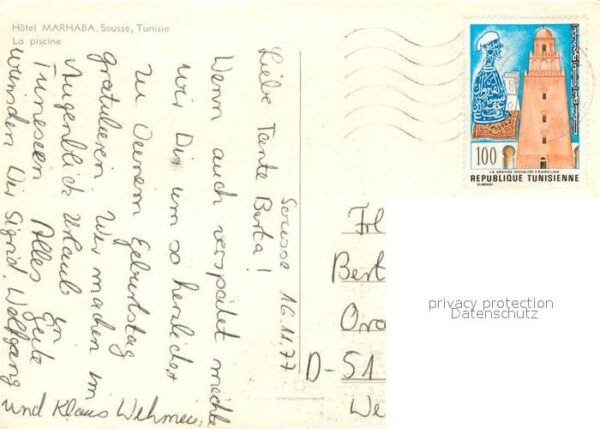 Hôtel MARHABA. Sousse, Tunisie
La piscine
Sousse 16.11.77
Liebe Tante Berta!
Wenn auch verspätet möchte
wir Dir um so herzlicher
zu Deinem Geburtstag
gratulieren. Wir machen im
Augenblick Urlaub in
Tunesien. Alles Gute
wünschen Dir Sigrid, Wolfgang
und Klaus Wehmeier
100
LA GRANDE MOSQUEE KAIROUAN
REPUBLIQUE TUNISIENNE
Frl
Bert
Ora
D-51
We
privacy protection
Datenschutz